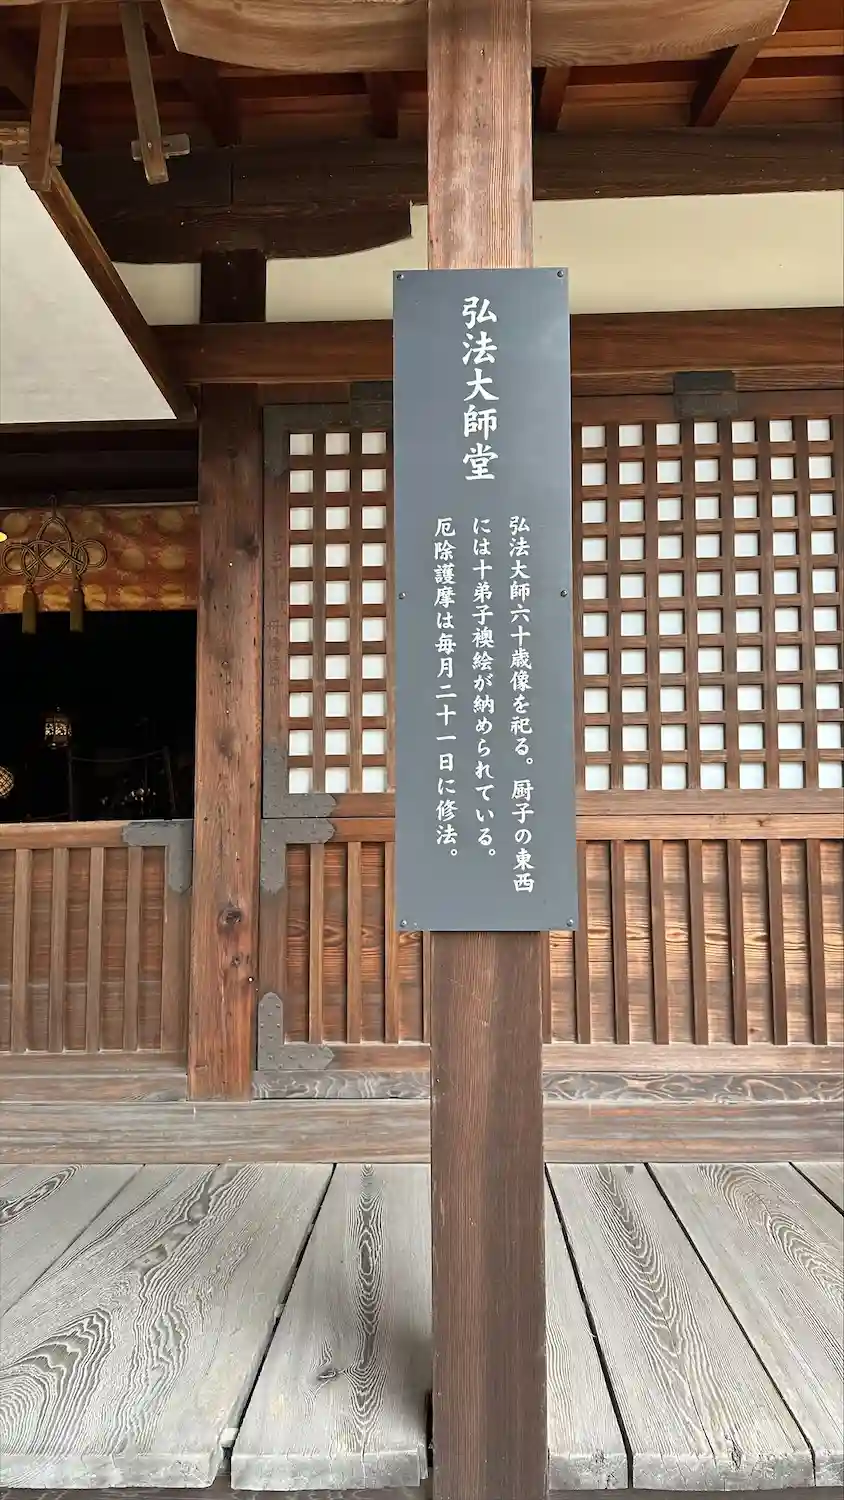 弘法大師堂
弘法大師六十歳像を祀る。厨子の東西
には十弟子襖絵が納められている。
厄除護摩は毎月二十一日に修法。